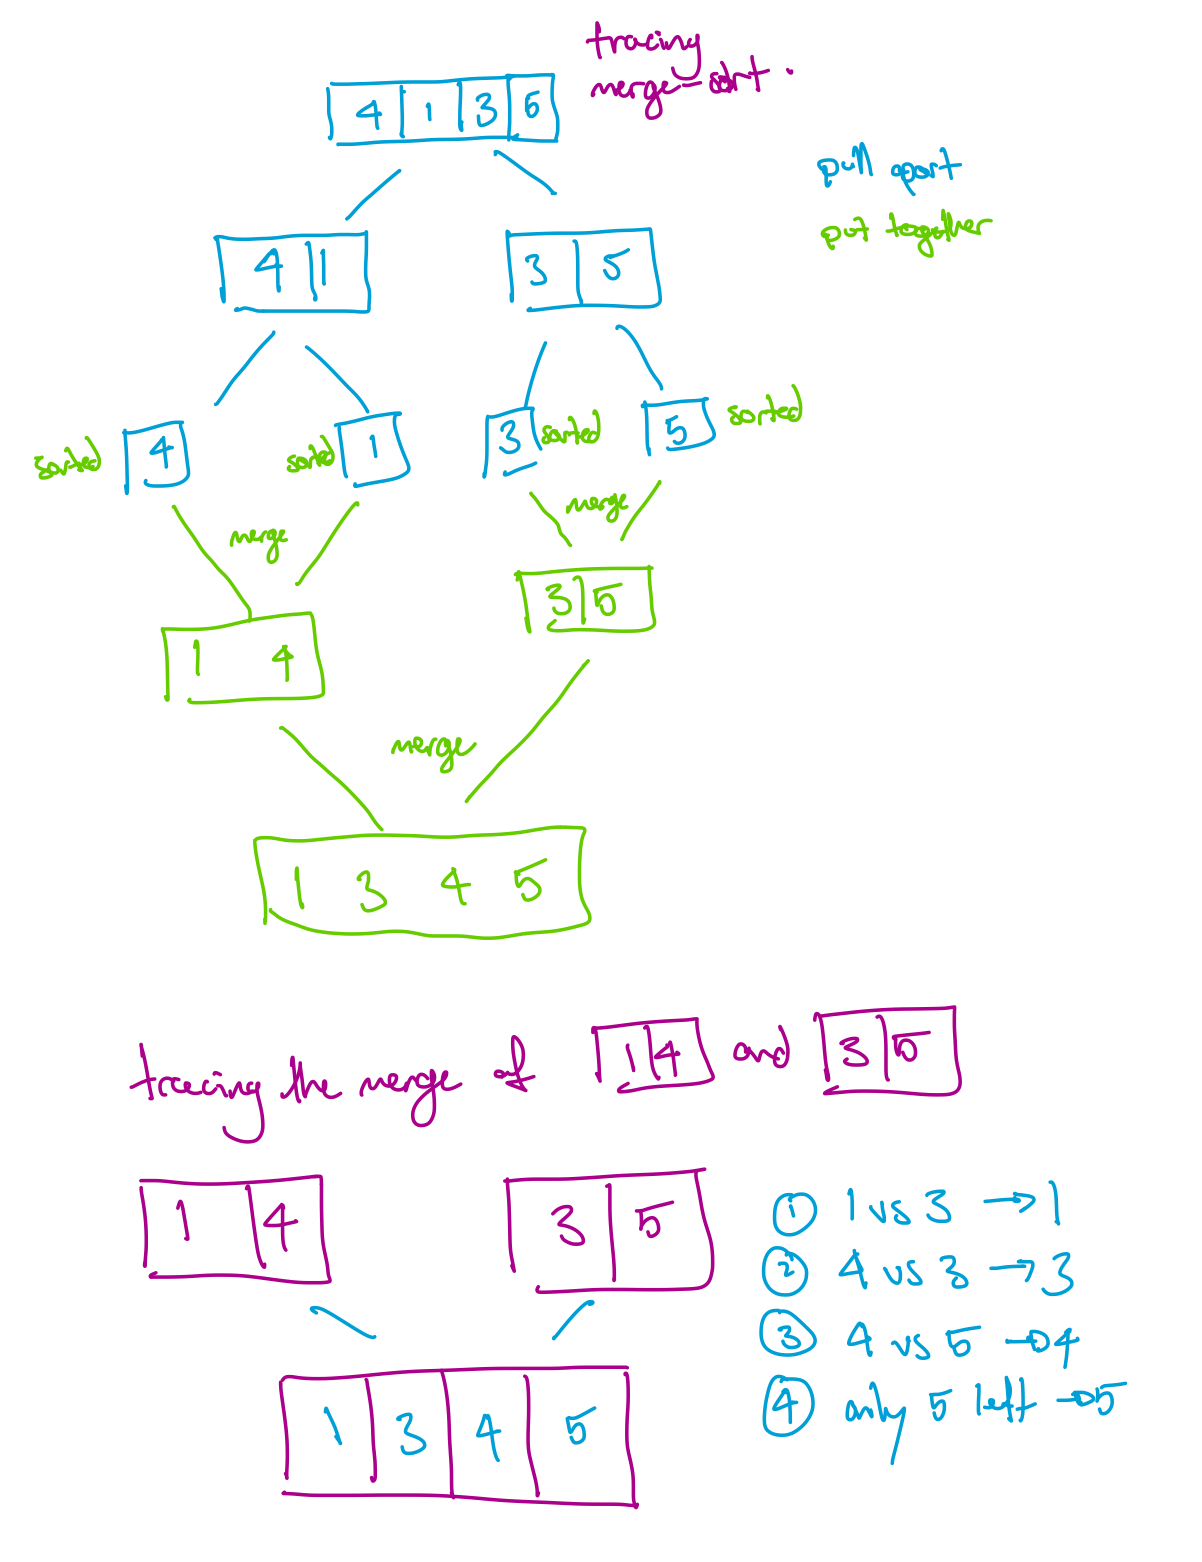 tracing
merge-sort.
4 1 3 5
pull apart
put together
4 1
3 5
sorted 4
sorted 1
3 sorted
5 sorted
merge
merge
3 5
1 4
merge
1 3 4 5
tracing the merge of 1 4 and 3 5
1 4
3 5
① 1 vs 3 → 1
② 4 vs 3 → 3
③ 4 vs 5 → 4
④ only 5 left → 5
1 3 4 5